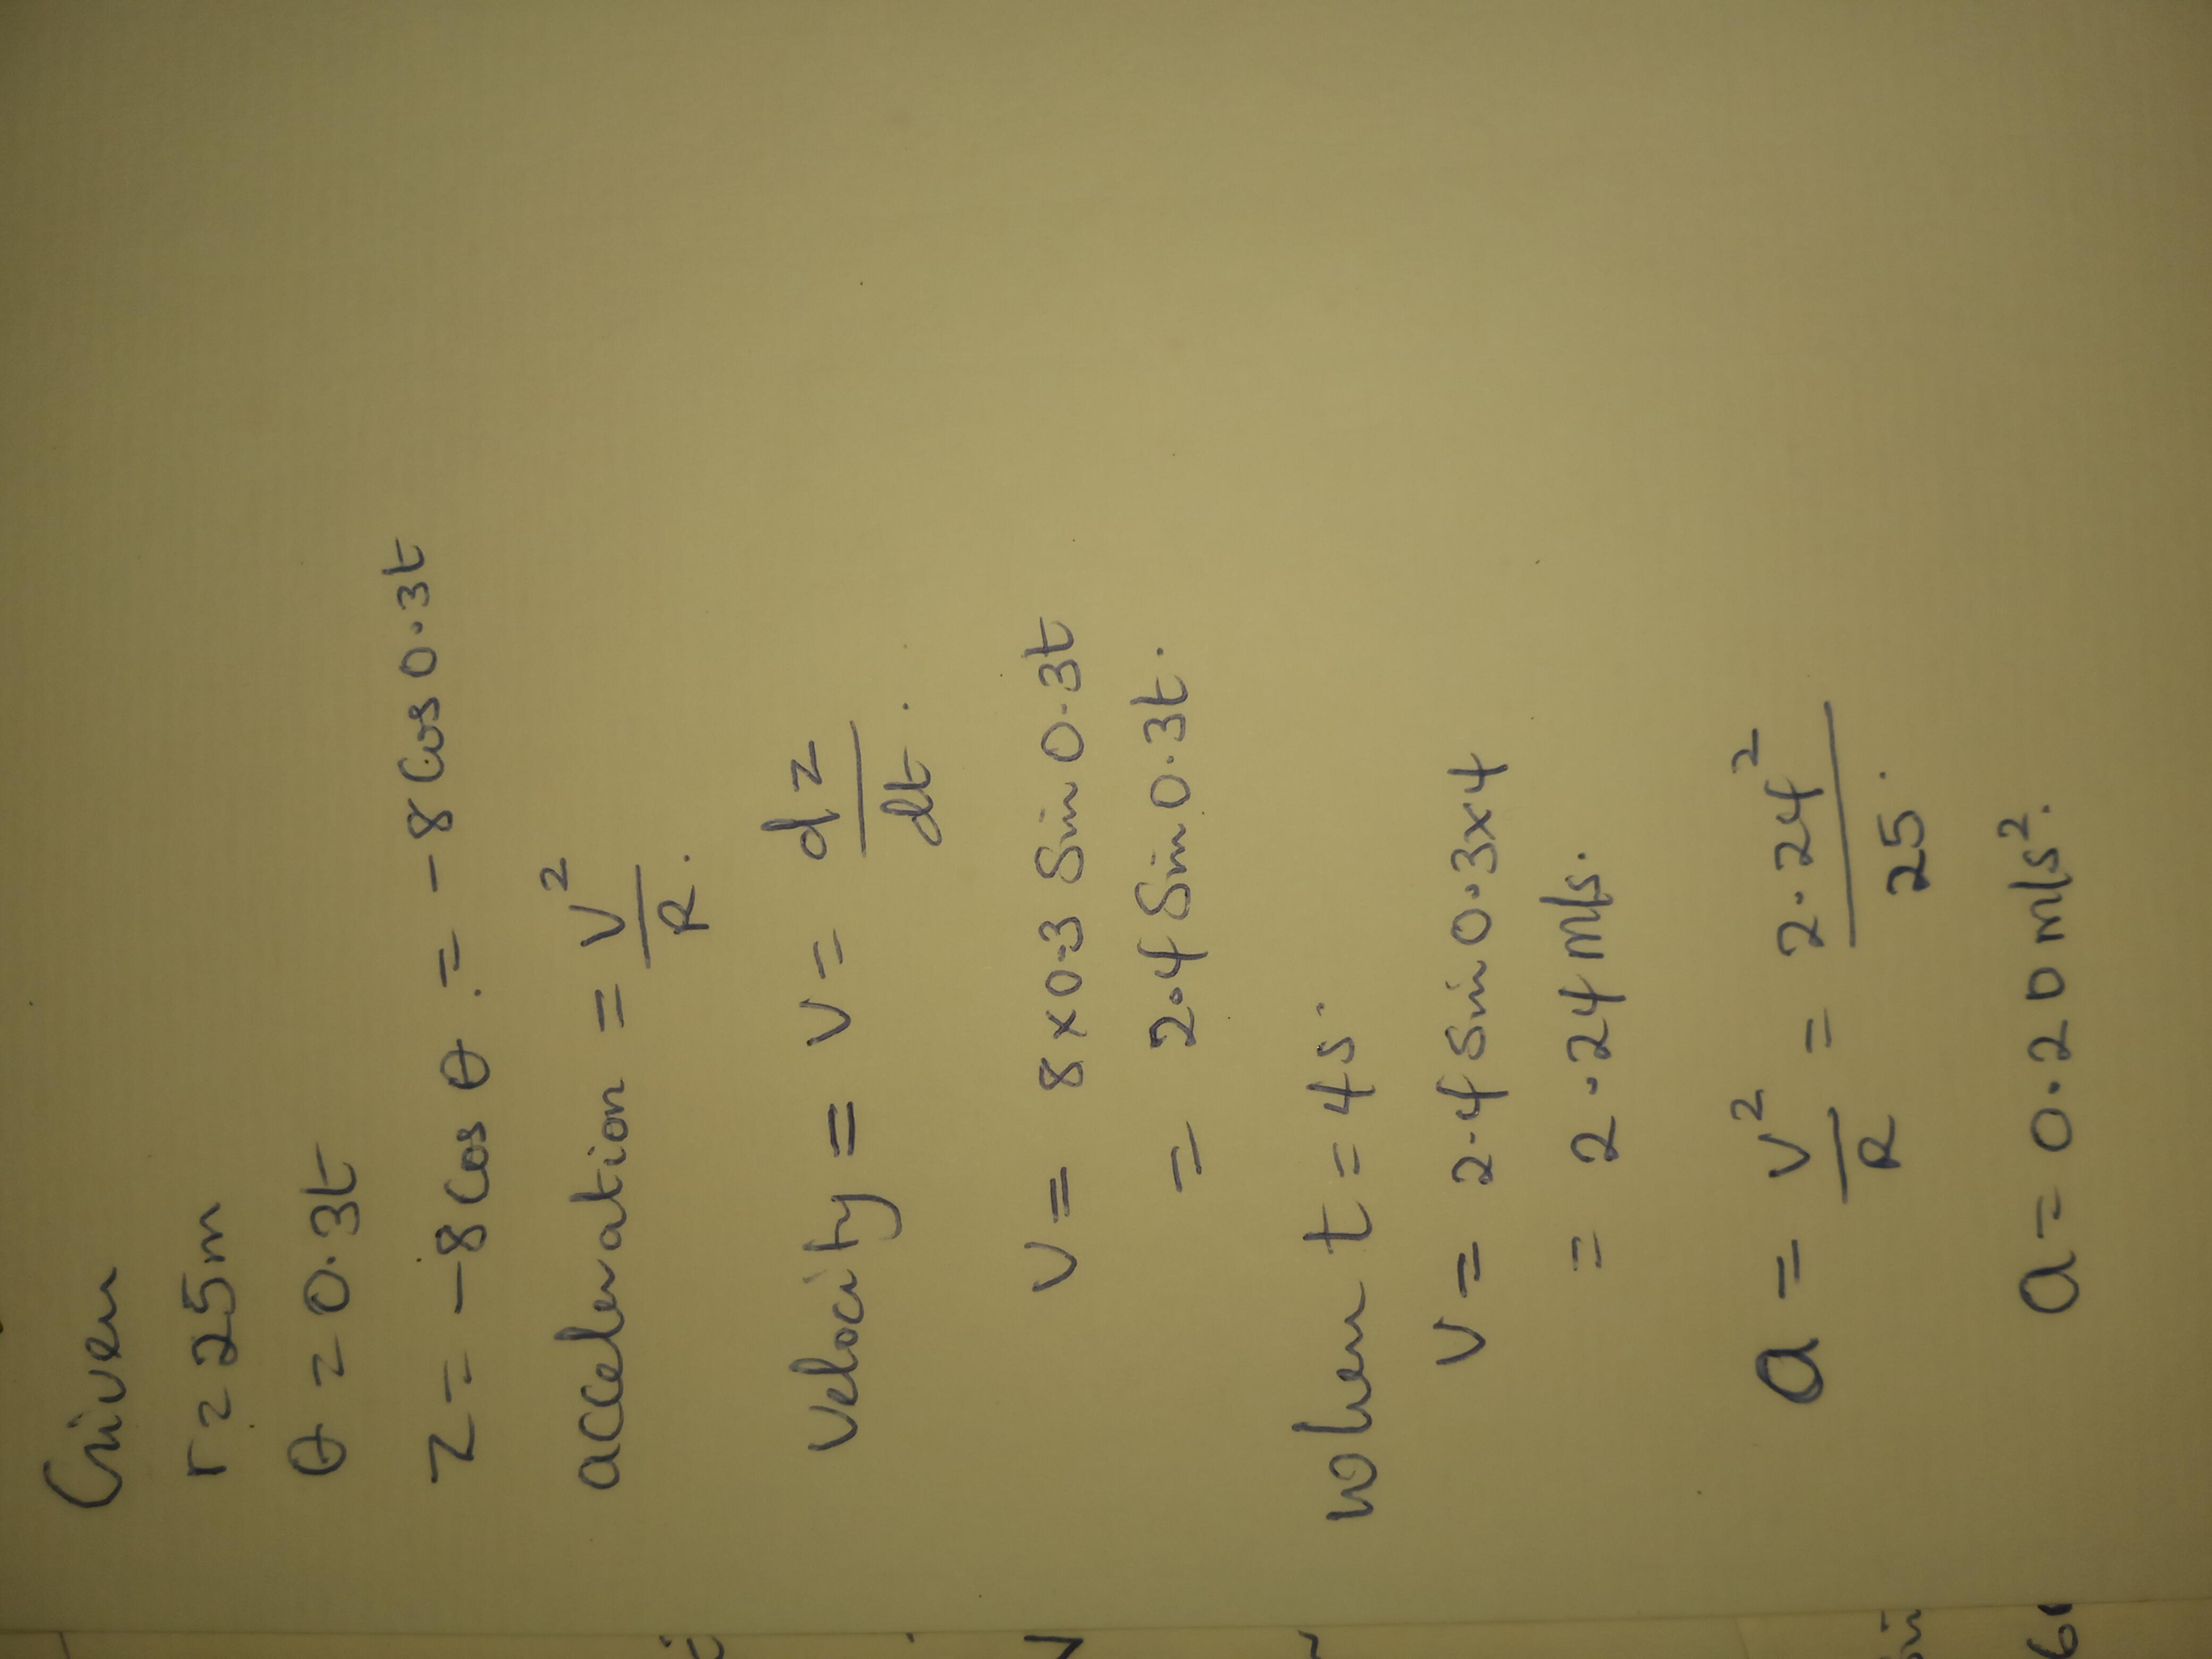 Given
r = 25m
θ = 0.3t
Z = -8 Cos θ . = -8 Cos 0.3t
acceleration = V²/R.
Velocity = V = dz/dt .
V = 8 x 0.3 Sin 0.3t
= 2.4 Sin 0.3t.
When t = 4s.
V = 2.4 Sin 0.3x4
= 2.24 m/s.
a = V²/R = 2.24²/25.
a = 0.20 m/s².